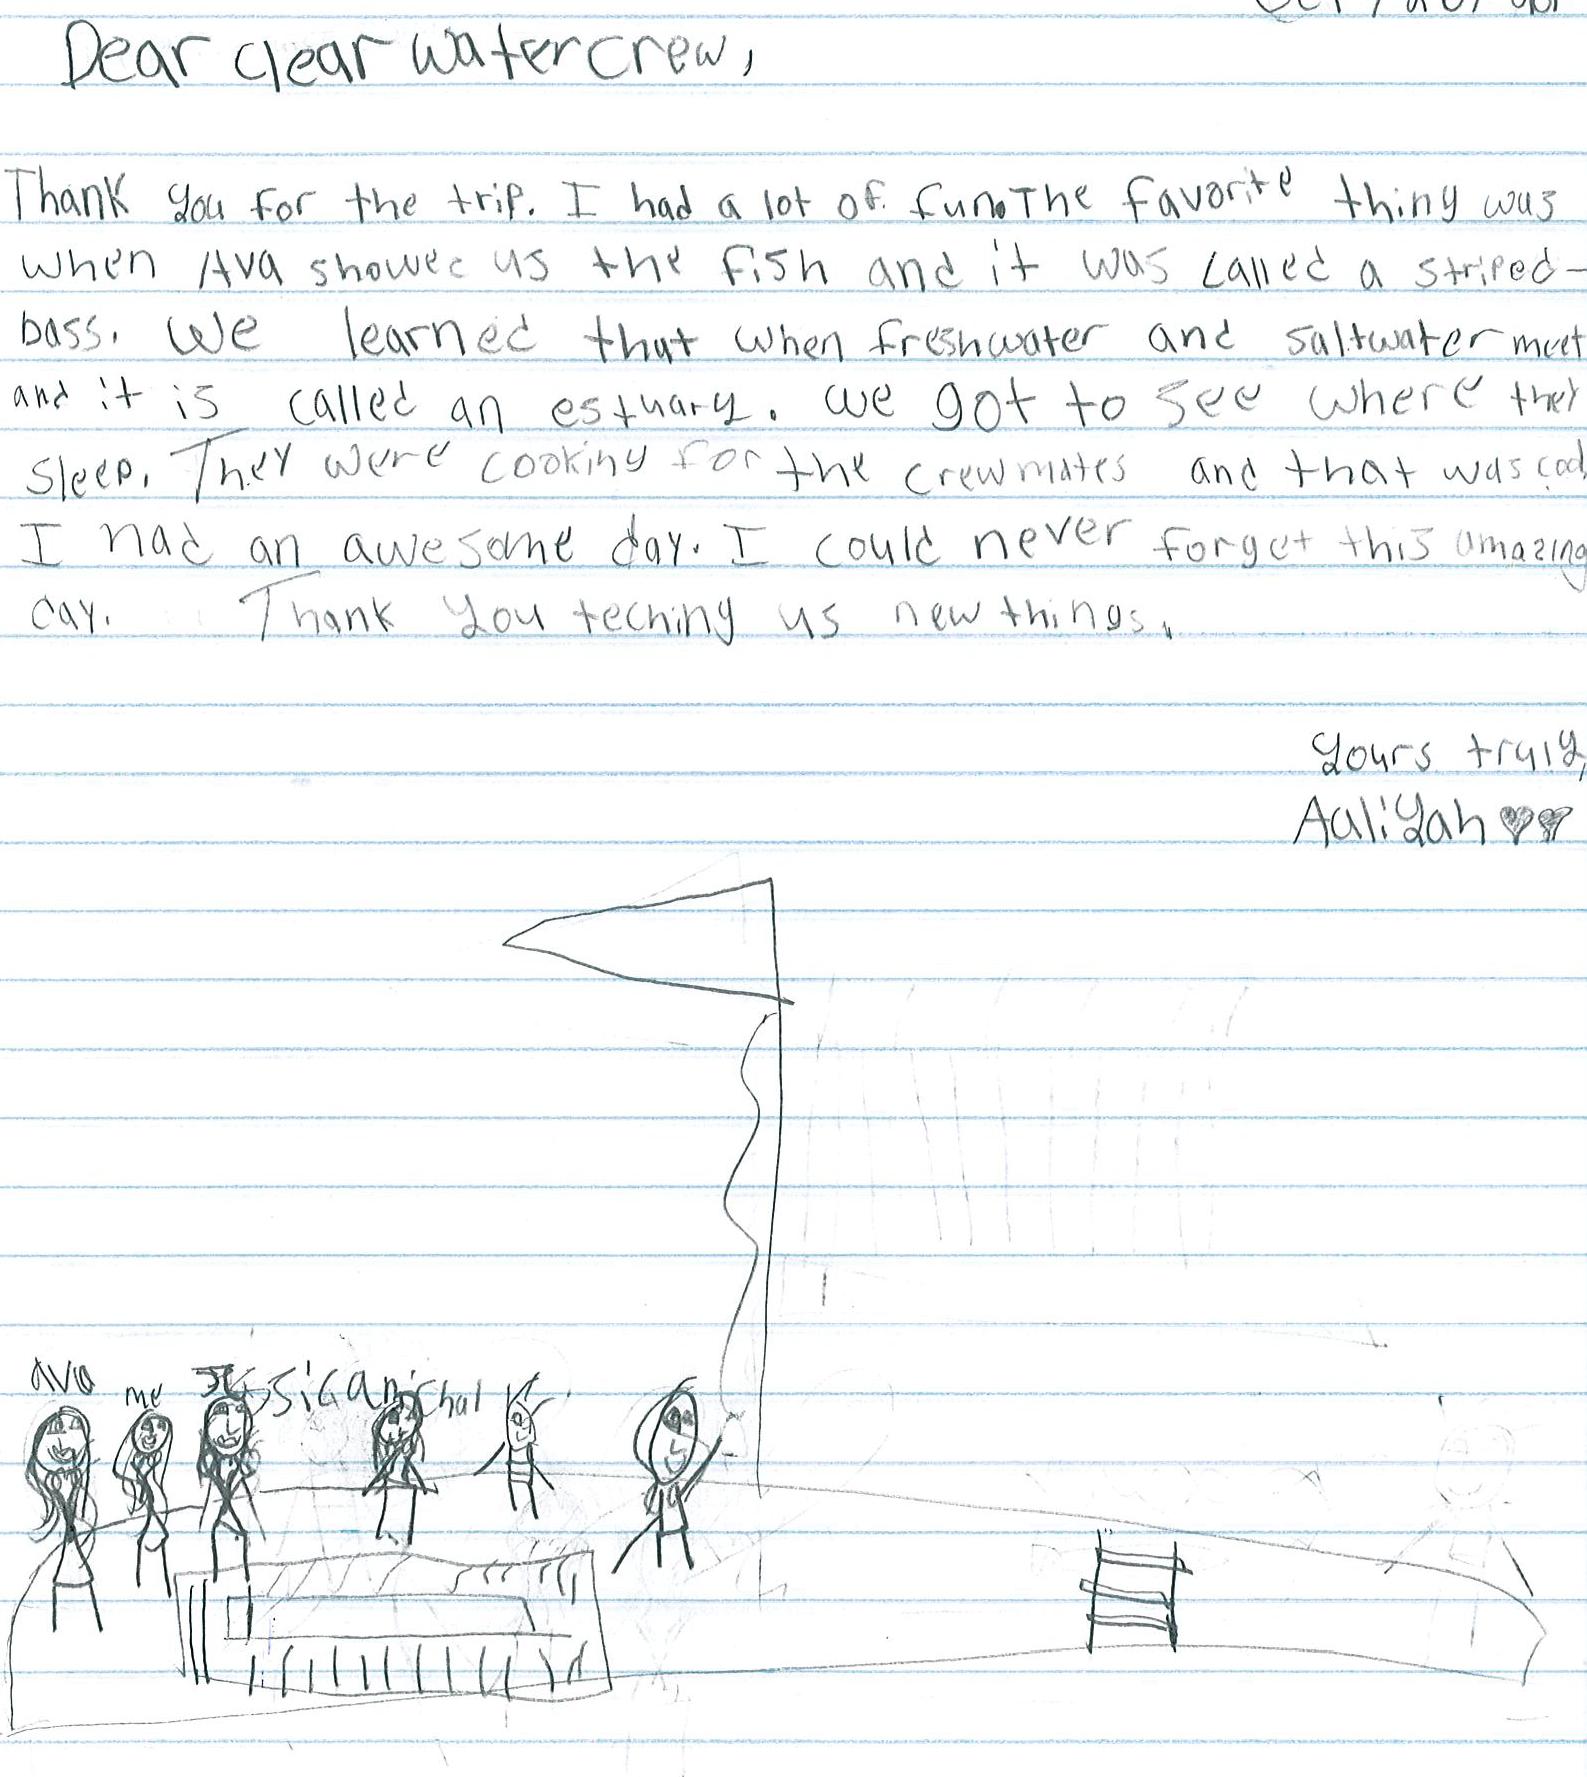 Dear clear water crew,
Thank you for the trip. I had a lot of fun. The favorite thing was
when Ava showed us the fish and it was called a striped-
bass. We learned that when freshwater and saltwater meet
and it is called an estuary. we got to see where they
sleep. They were cooking for the crewmates and that was cool
I had an awesome day. I could never forget this amazing
day. Thank you teching us new things.
Yours truly,
Aaliyah
Ava me Jessica